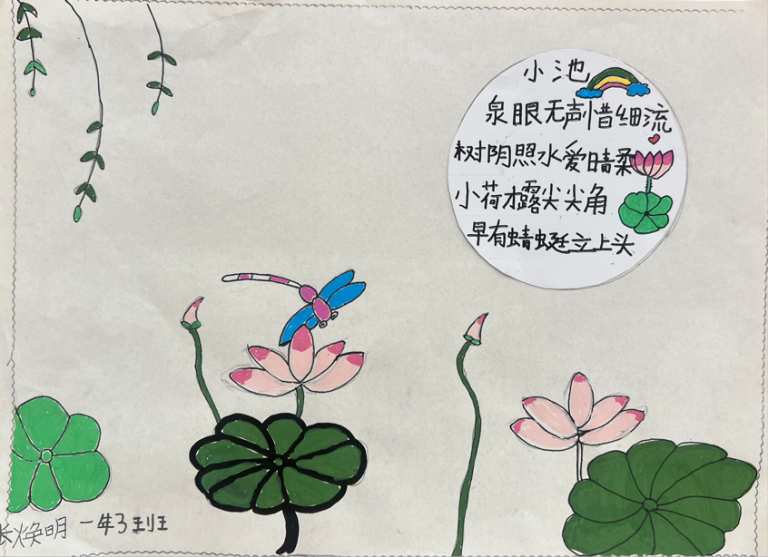 小池
泉眼无声惜细流
树阴照水爱晴柔
小荷才露尖尖角
早有蜻蜓立上头
焕明 一年3班